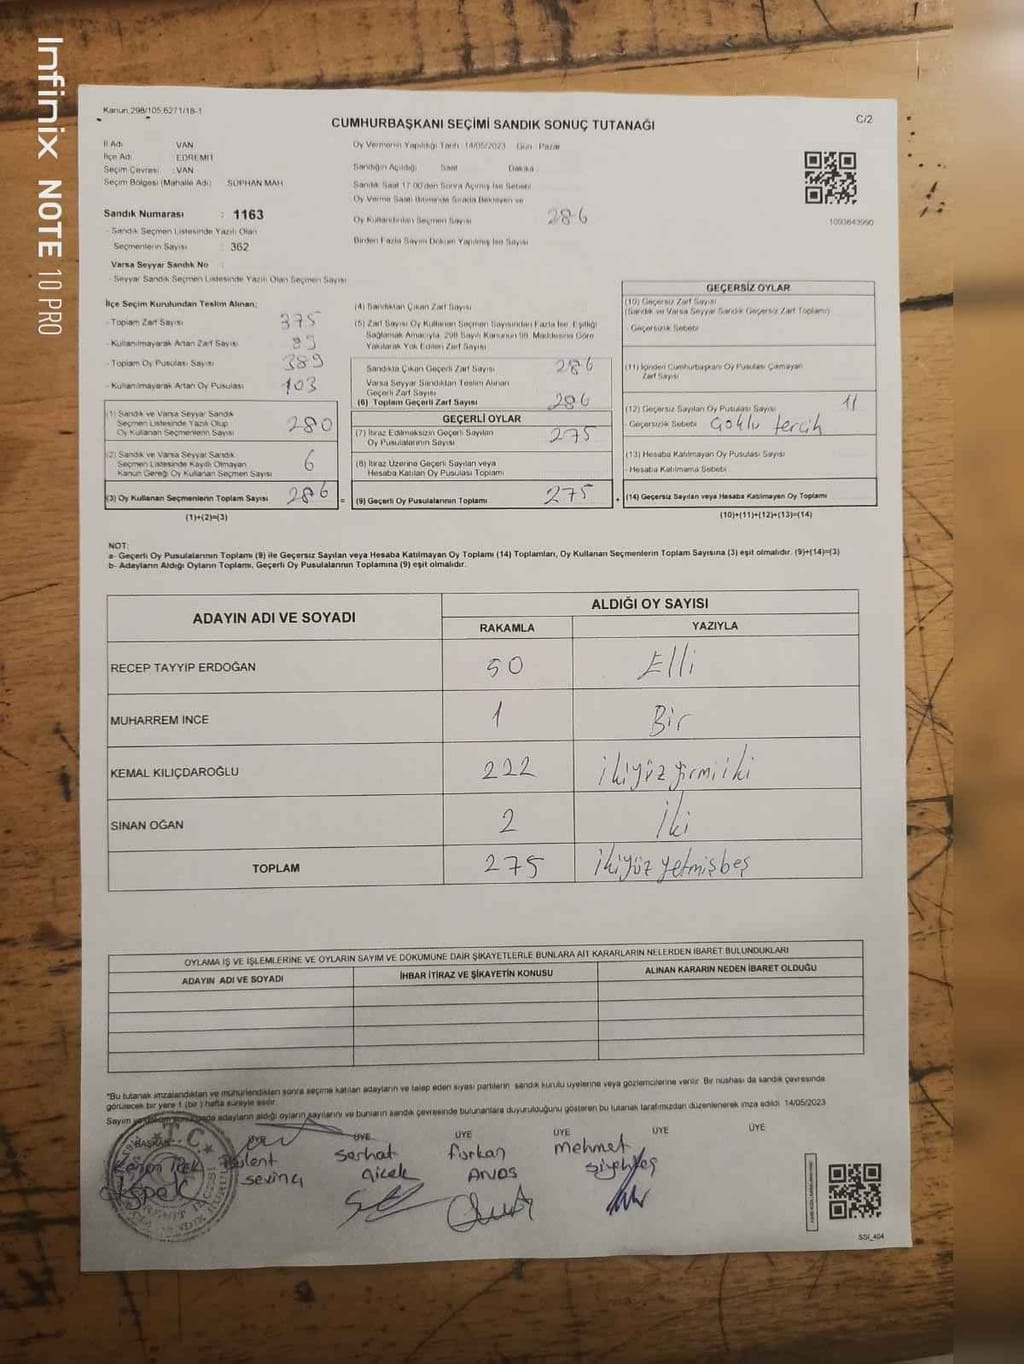 Infinix NOTE 10 PRO
Kanun 298/105 6271/18-1
CUMHURBAŞKANI SEÇİMİ SANDIK SONUÇ TUTANAĞI
C/2
İl Adı VAN
İlçe Adı EDREMİT
Seçim Çevresi : VAN
Seçim Bölgesi (Mahalle Adı) SÜPHAN MAH
Sandık Numarası : 1163
- Sandık Seçmen Listesinde Yazılı Olan
Seçmenlerin Sayısı : 362
Varsa Seyyar Sandık No
- Seyyar Sandık Seçmen Listesinde Yazılı Olan Seçmen Sayısı
Oy Vermenin Yapıldığı Tarih 14/05/2023 Gün Pazar
Sandığın Açıldığı Saat Dakika
Sandık Saat 17.00'den Sonra Açılmış İse Sebebi
Oy Verme Saati Bitiminde Sırada Bekleyen ve
Oy Kullandırılan Seçmen Sayısı 286
Birden Fazla Sayım Döküm Yapılmış İse Sayısı
1093643990
İlçe Seçim Kurulundan Teslim Alınan;
- Toplam Zarf Sayısı 375
- Kullanılmayarak Artan Zarf Sayısı 89
- Toplam Oy Pusulası Sayısı 389
- Kullanılmayarak Artan Oy Pusulası 103
(1) Sandık ve Varsa Seyyar Sandık
Seçmen Listesinde Yazılı Olup
Oy Kullanan Seçmenlerin Sayısı 280
(2) Sandık ve Varsa Seyyar Sandık
Seçmen Listesinde Kayıtlı Olmayan
Kanun Gereği Oy Kullanan Seçmen Sayısı 6
(3) Oy Kullanan Seçmenlerin Toplam Sayısı 286 =
(1)+(2)=(3)
(4) Sandıktan Çıkan Zarf Sayısı
(5) Zarf Sayısı Oy Kullanan Seçmen Sayısından Fazla İse, Eşitliği
Sağlamak Amacıyla, 298 Sayılı Kanunun 98. Maddesine Göre
Yakılarak Yok Edilen Zarf Sayısı
Sandıkta Çıkan Geçerli Zarf Sayısı 286
Varsa Seyyar Sandıktan Teslim Alınan
Geçerli Zarf Sayısı
(6) Toplam Geçerli Zarf Sayısı 286
GEÇERLİ OYLAR
(7) İtiraz Edilmeksizin Geçerli Sayılan
Oy Pusulalarının Sayısı 275
(8) İtiraz Üzerine Geçerli Sayılan veya
Hesaba Katılan Oy Pusulası Toplamı
(9) Geçerli Oy Pusulalarının Toplamı 275 +
GEÇERSİZ OYLAR
(10) Geçersiz Zarf Sayısı
(Sandık ve Varsa Seyyar Sandık Geçersiz Zarf Toplamı)
- Geçersizlik Sebebi
(11) İçinden Cumhurbaşkanı Oy Pusulası Çıkmayan
Zarf Sayısı
(12) Geçersiz Sayılan Oy Pusulası Sayısı 11
- Geçersizlik Sebebi Çoklu tercih
(13) Hesaba Katılmayan Oy Pusulası Sayısı
- Hesaba Katılmama Sebebi
(14) Geçersiz Sayılan veya Hesaba Katılmayan Oy Toplamı
(10)+(11)+(12)+(13)=(14)
NOT:
a- Geçerli Oy Pusulalarının Toplamı (9) ile Geçersiz Sayılan veya Hesaba Katılmayan Oy Toplamı (14) Toplamları, Oy Kullanan Seçmenlerin Toplam Sayısına (3) eşit olmalıdır. (9)+(14)=(3)
b- Adayların Aldığı Oyların Toplamı, Geçerli Oy Pusulalarının Toplamına (9) eşit olmalıdır.
ADAYIN ADI VE SOYADI ALDIĞI OY SAYISI
RAKAMLA YAZIYLA
RECEP TAYYİP ERDOĞAN 50 Elli
MUHARREM İNCE 1 Bir
KEMAL KILIÇDAROĞLU 222 ikiyüz yirmi iki
SİNAN OĞAN 2 İki
TOPLAM 275 ikiyüz yetmişbeş
OYLAMA İŞ VE İŞLEMLERİNE VE OYLARIN SAYIM VE DÖKÜMÜNE DAİR ŞİKAYETLERLE BUNLARA AİT KARARLARIN NELERDEN İBARET BULUNDUKLARI
ADAYIN ADI VE SOYADI İHBAR İTİRAZ VE ŞİKAYETİN KONUSU ALINAN KARARIN NEDEN İBARET OLDUĞU
*Bu tutanak imzalandıktan ve mühürlendikten sonra seçime katılan adayların ve talep eden siyasi partilerin sandık kurulu üyelerine veya gözlemcilerine verilir. Bir nüshası da sandık çevresinde
görülecek bir yere 1 (bir) hafta süreyle asılır.
adayların aldığı oyların sayılarını ve bunların sandık çevresinde bulunanlara duyurulduğunu gösteren bu tutanak tarafımızdan düzenlenerek imza edildi. 14/05/2023
BAŞKAN ÜYE ÜYE ÜYE ÜYE ÜYE
T.C.
Bülent sevinç
serhat çiçek
furkan
mehmet
SSI_404